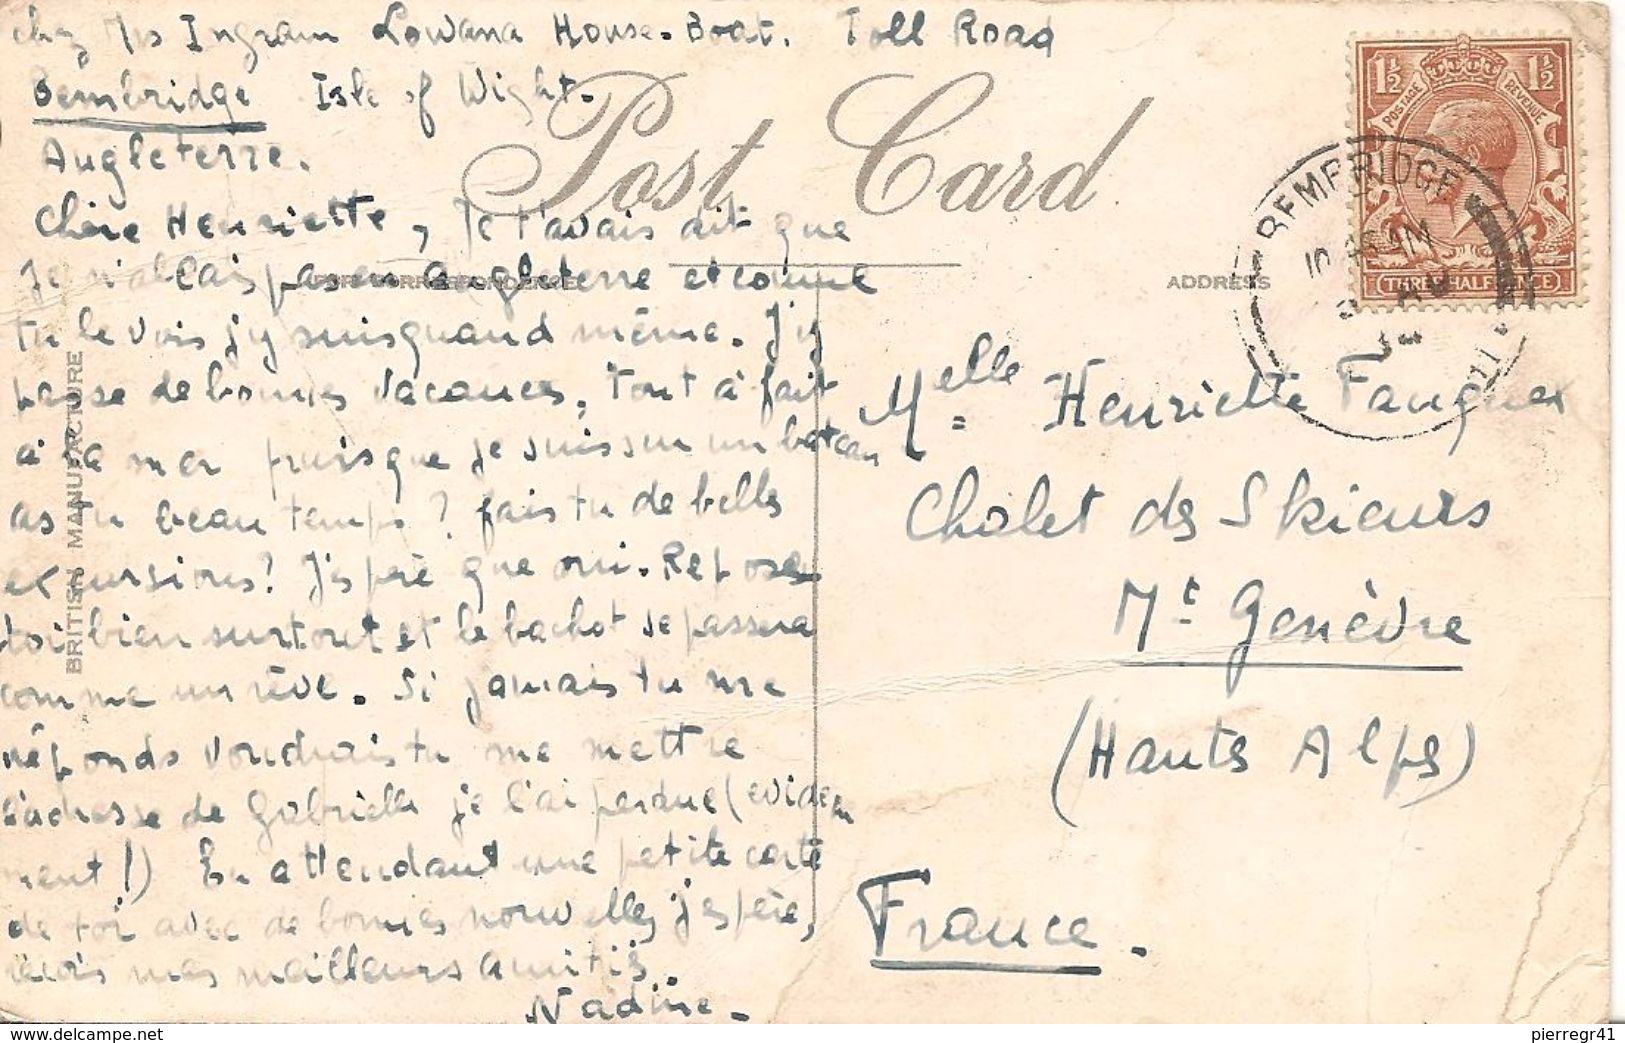 chez Mrs Ingram Lowana House-Boat. Toll Road
Bembridge Isle of Wight.
Angleterre.
Post Card
Chère Henriette, Je t'avais dit que
Je n'allais pas en Angleterre et comme
tu le vois j'y suis quand même. J'y
passe de bonnes vacances, tout à fait
à la mer puisque je suis sur un bateau
as tu beau temps? fais tu de belles
excursions? J'espère que oui. Reposes
toi bien surtout et le bachot se passera
comme un rêve. Si jamais tu me
réponds voudrais tu me mettre
l'adresse de Gabrielle je l'ai perdue (evidem
ment!) En attendant une petite carte
de toi avec de bonnes nouvelles j'espère,
reçois mes meilleurs amitiés.
Nadine.
FOR CORRESPONDENCE
ADDRESS
BRITISH MANUFACTURE
1½ 1½
POSTAGE REVENUE
THREE HALFPENCE
BEMBRIDGE
AM
AU
34
Melle Henriette
Chalet des Skieurs
Mt Genèvre
(Hautes Alpes)
France.
pierregr41